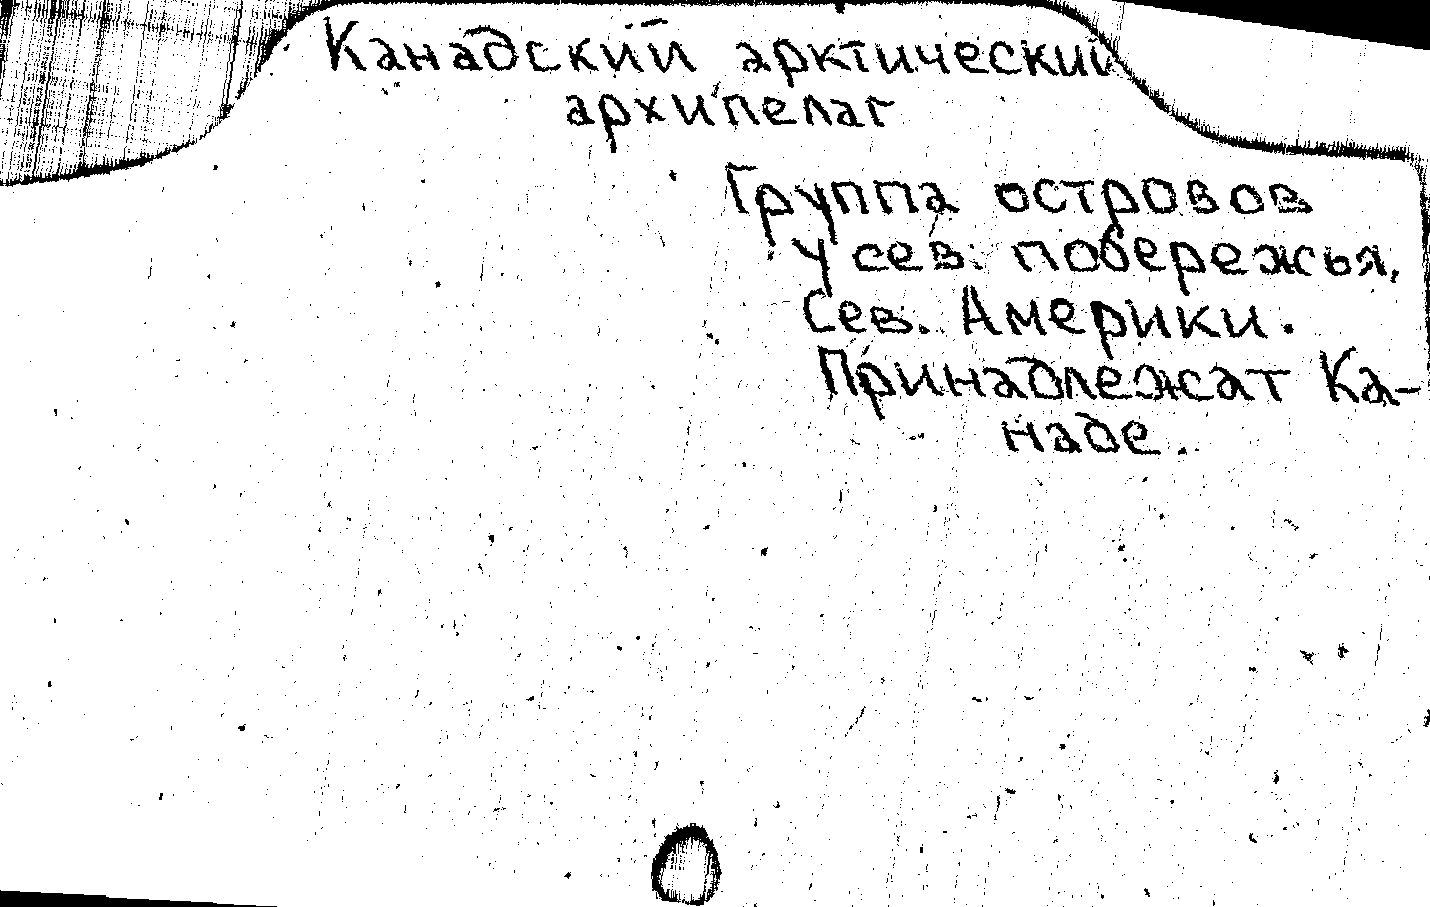 Канадский арктический
архипелаг
Группа островов
у сев. побережья,
Сев. Америки.
Принадлежат Ка-
наде.